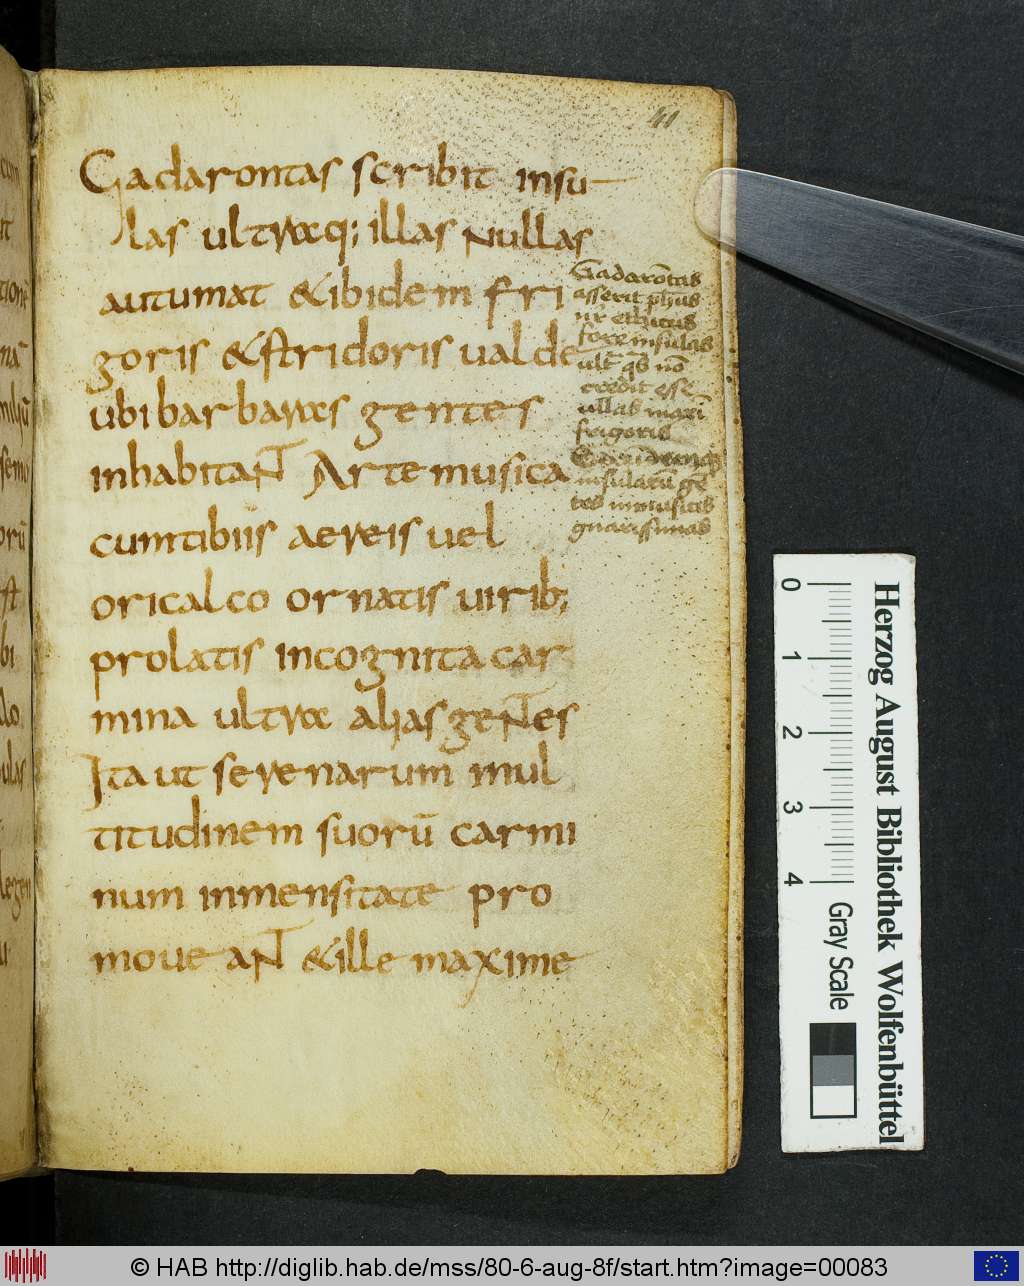 41
Gadarontas scribit insu
las ultraq; illas nullas
autumat & ibidem fri
goris & stridoris ualde
ubi barbaras gentes
inhabitant Arte musica
cunctibiis aereis uel
oricalco ornatis uirib;
prolatis incognita car
mina ultra alias gentes
Ita ut serenarum mul
titudinem suorū carmi
num inmensitate pro
moveant & ille maxime
Gadarōtas
asserit phus
nr ethicus
fore insulas
ult qs nō
credit esse
ullas maxi
frigoris
insularū gē
tes inmusicis
gnarissimas
Herzog August Bibliothek Wolfenbüttel
0 1 2 3 4 Gray Scale
© HAB http://diglib.hab.de/mss/80-6-aug-8f/start.htm?image=00083